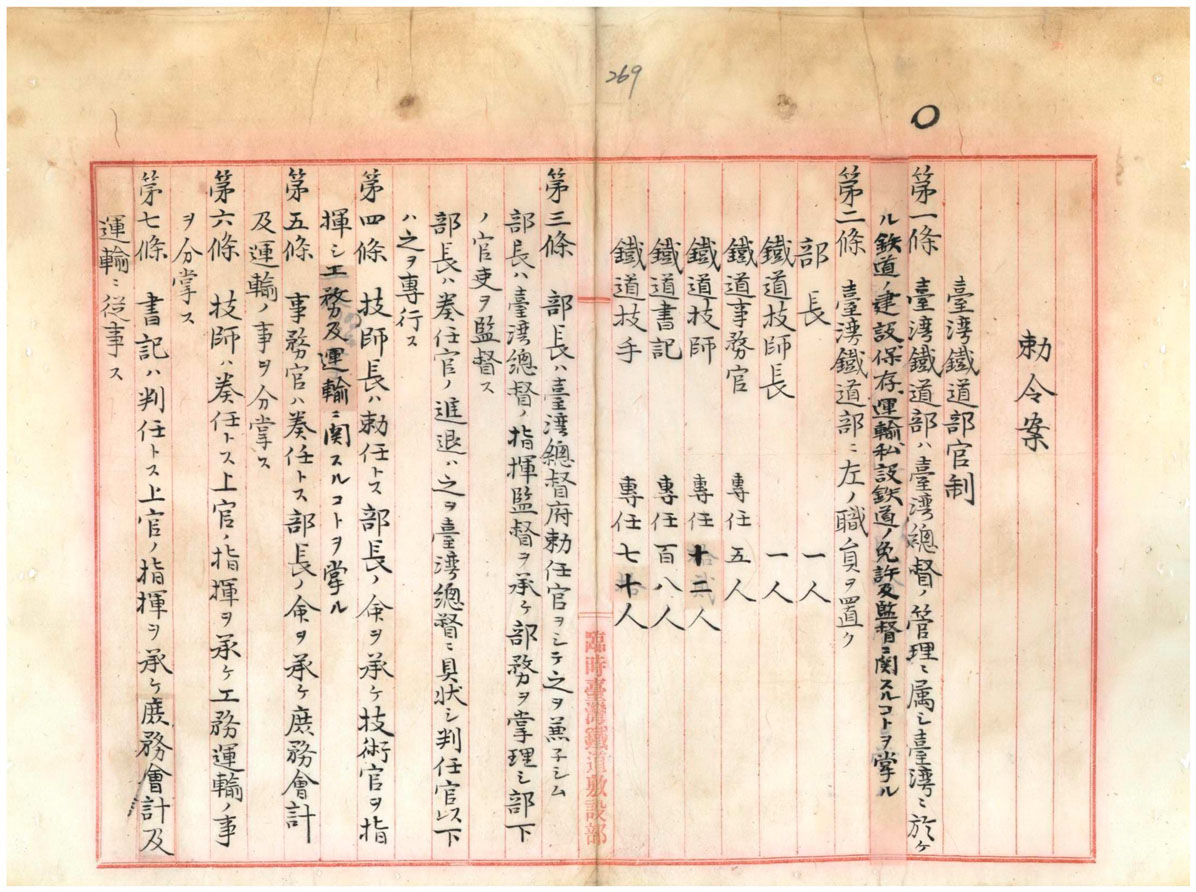 269
勅令案
臺灣鐵道部官制
第一條　臺灣鐵道部ハ臺灣總督ノ管理ニ属シ臺灣ニ於ケ
ル鉄道ノ建設保存運輸私設鉄道ノ免許及監督ニ関スルコトヲ掌ル
第二條　臺湾鐵道部ニ左ノ職員ヲ置ク
部長　一人
鐵道技師長　一人
鐵道事務官　專任五人
鐵道技師　專任十二人
鐵道書記　專任百八人
鐵道技手　專任七十人
臨時臺灣鐵道敷設部
第三條　部長ハ臺湾總督府勅任官ヲシテ之ヲ兼子シム
部長ハ臺湾總督ノ指揮監督ヲ承ケ部務ヲ掌理シ部下
ノ官吏ヲ監督ス
部長ハ奏任官ノ進退ハ之ヲ臺湾總督ニ具状シ判任官以下
ハ之ヲ專行ス
第四條　技師長ハ勅任トス部長ノ命ヲ承ケ技術官ヲ指
揮シ工務及運輸ニ関スルコトヲ掌ル
第五條　事務官ハ奏任トス部長ノ命ヲ承ケ庶務會計
及運輸ノ事ヲ分掌ス
第六條　技師ハ奏任トス上官ノ指揮ヲ承ケ工務運輸ノ事
ヲ分掌ス
第七條　書記ハ判任トス上官ノ指揮ヲ承ケ庶務會計及
運輸ニ従事ス